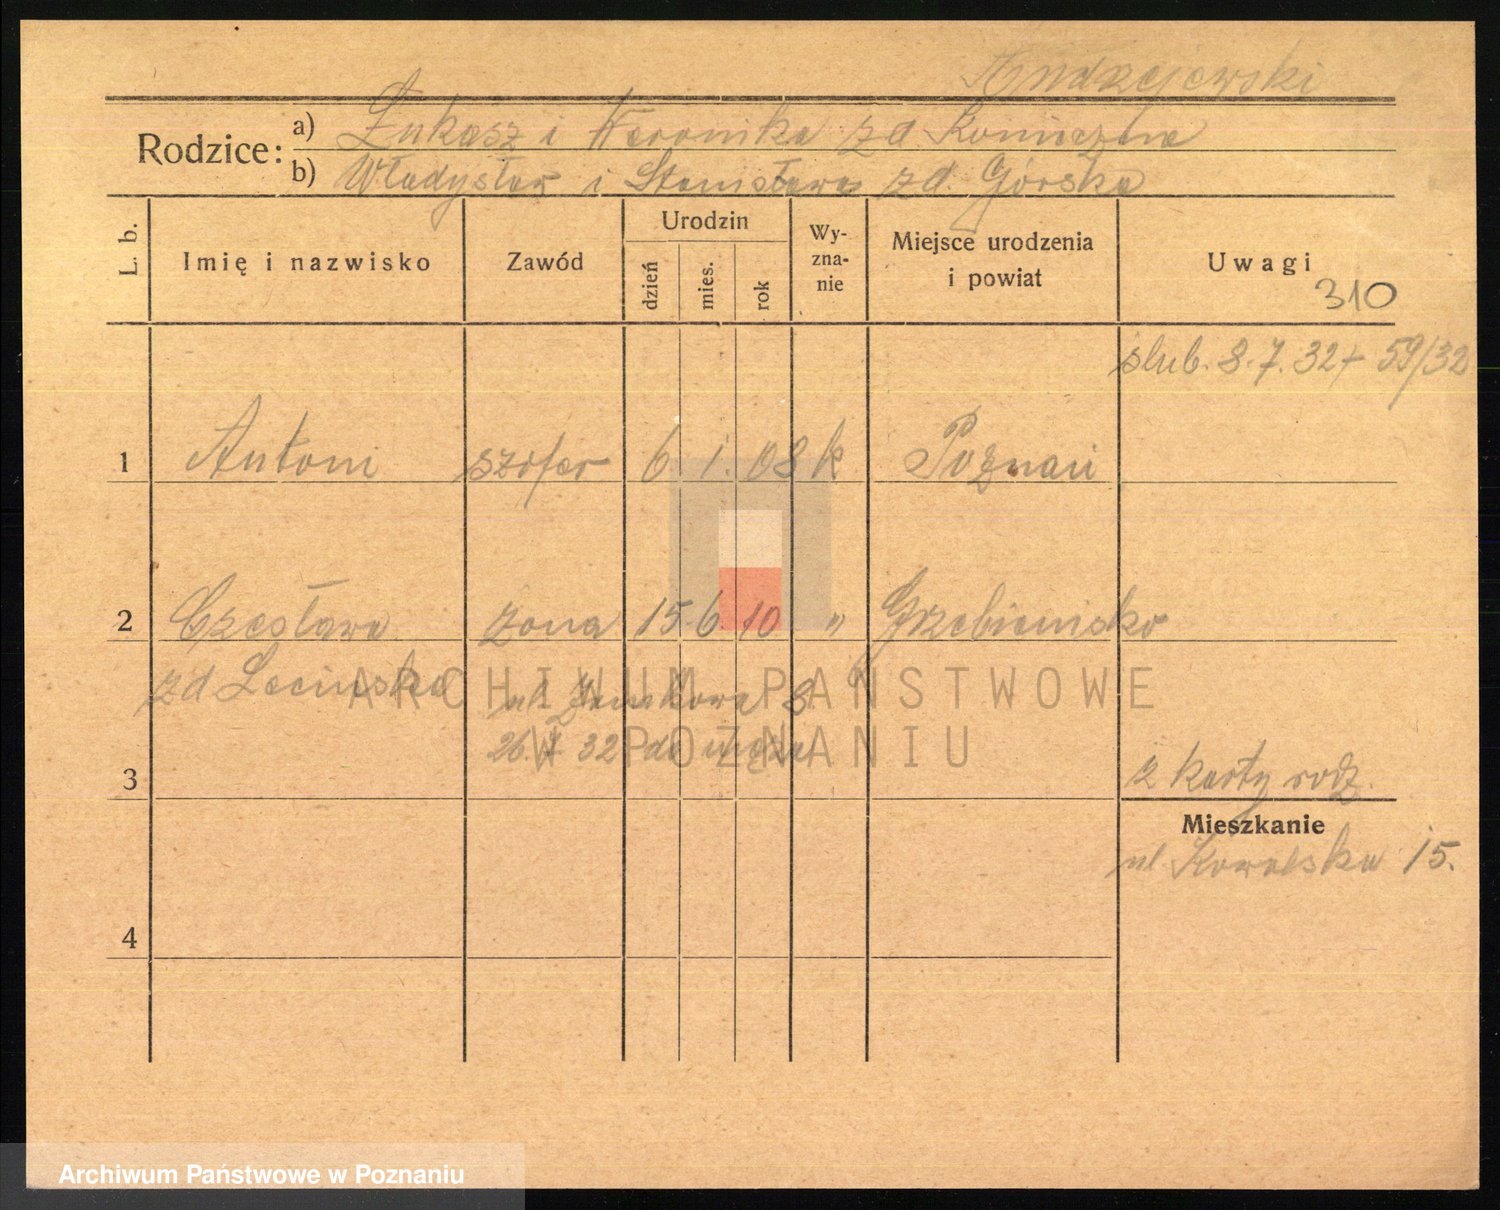 Andrzejewski
Rodzice: a) Łukasz i Weronika zd Konieczna
b) Władysław i Stanisława zd. Górska
L. b. Imię i nazwisko Zawód Urodzin dzień mies. rok Wy-zna-nie Miejsce urodzenia i powiat Uwagi
310
ślub. 8.7.32r 59/32
1 Antoni szofer 6 1. 08 k Poznań
2 Czesława żona 15 6 10 " Grzebienisko
zd Lecińska ul 8
26. 32 do męża
3 2 karty rodz.
Mieszkanie
ul. Kowalska 15.
4
ARCHIWUM PAŃSTWOWE
W POZNANIU
Archiwum Państwowe w Poznaniu